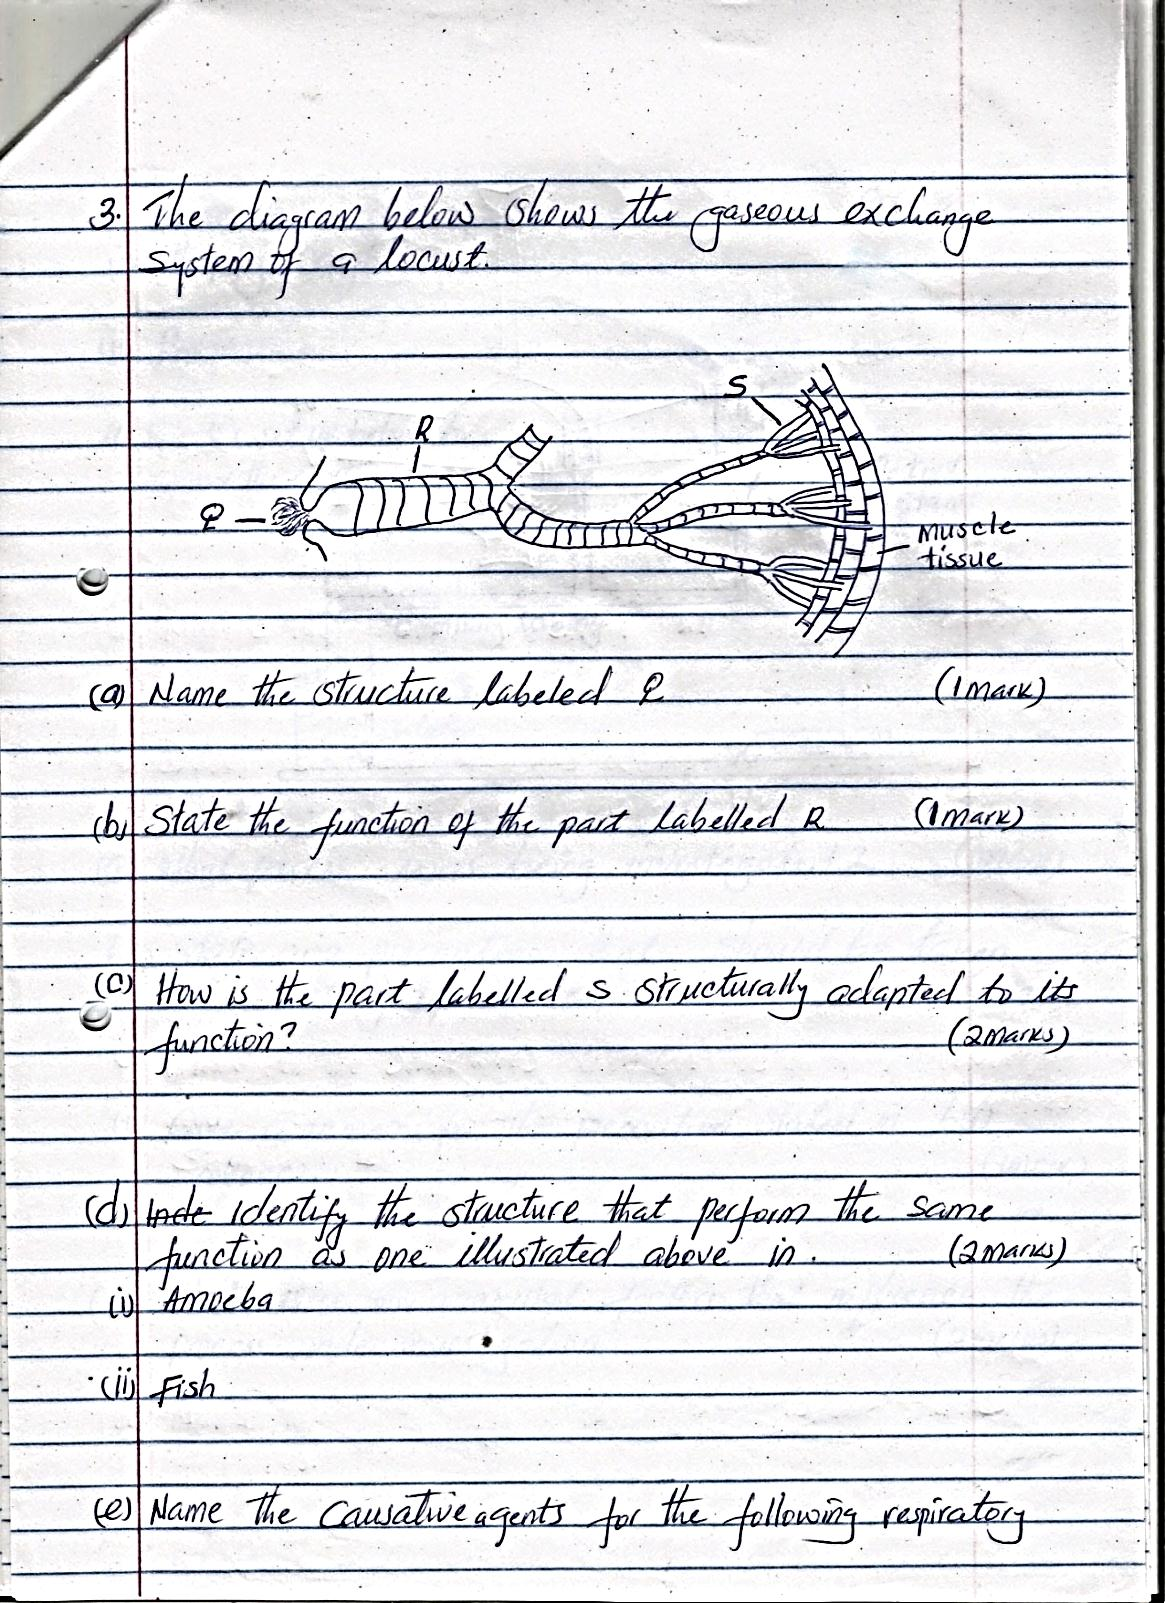 3. The diagram below shows the gaseous exchange
system of a locust.
S
R
Q
Muscle
tissue
(a) Name the structure labeled Q (1mark)
(b) State the function of the part labelled R (1mark)
(c) How is the part labelled S structurally adapted to its
function? (2marks)
(d) Identify the structure that perform the same
function as one illustrated above in. (2marks)
(i) Amoeba
(ii) Fish
(e) Name the causative agents for the following respiratory